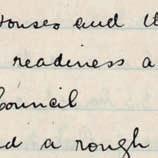 Houses and
readiness a
Council
a rough